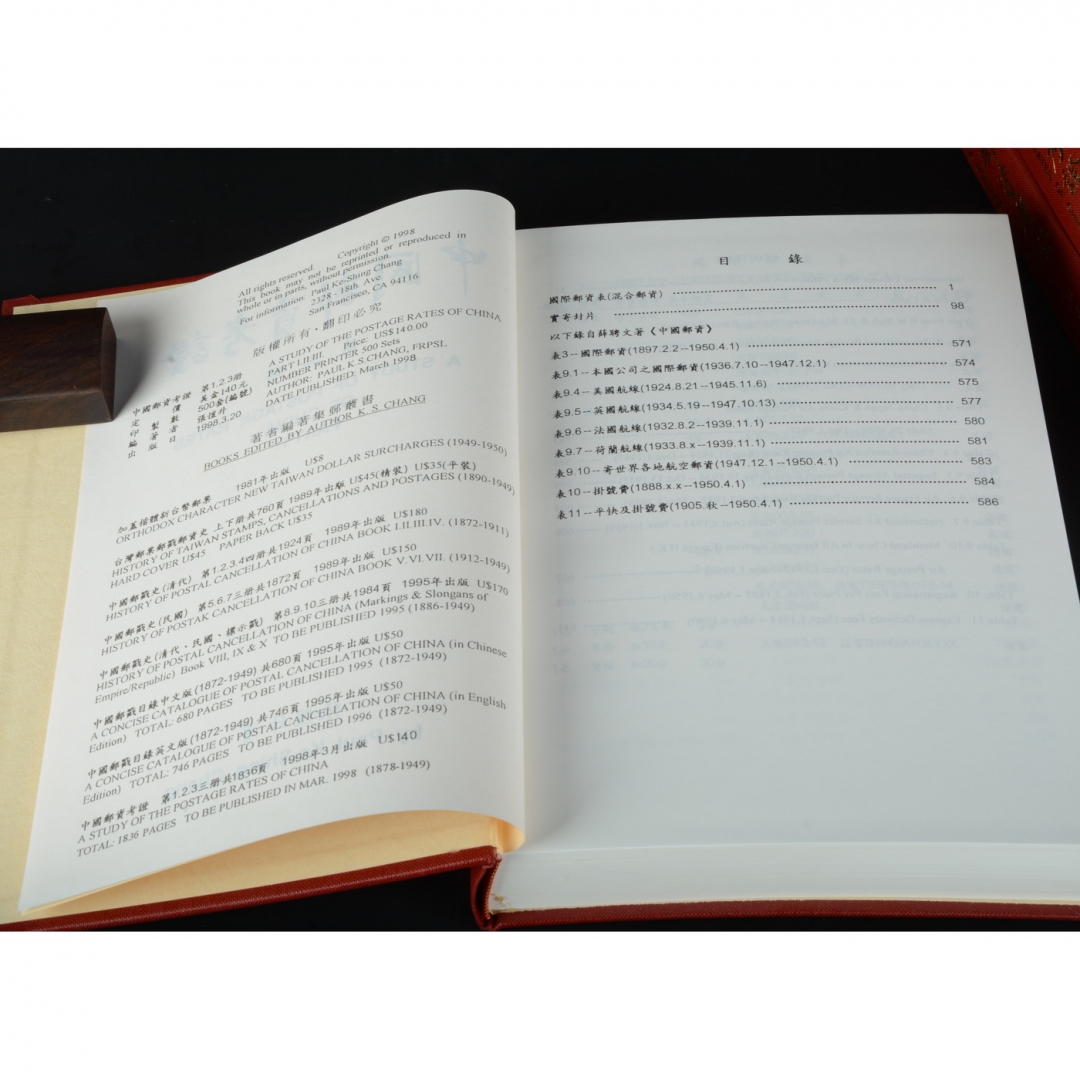 Copyright © 1998
All rights reserved.
This book may not be reprinted or reproduced in
whole or in parts, without permission.
For information: Paul Ke-Shing Chang
2328 - 18th. Ave.
San Francisco, CA 94116
版權所有·翻印必究
A STUDY OF THE POSTAGE RATES OF CHINA
PART I.II.III. Price: US$140.00
NUMBER PRINTER 500 Sets
AUTHOR: PAUL K S CHANG, FRPSL
DATE PUBLISHED: March 1998
中國郵資考證 第1.2.3册
定價 美金140元
印製數 500套(編號)
編著者 張愷升
出版日 1998.3.20
著者編著集郵叢書
BOOKS EDITED BY AUTHOR K. S. CHANG
加蓋楷體新台幣郵票 1981年出版 U$8
ORTHODOX CHARACTER NEW TAIWAN DOLLAR SURCHARGES (1949-1950)
台灣郵票郵戳郵資史 上下册共760頁 1989年出版 U$45(精裝) U$35(平裝)
HISTORY OF TAIWAN STAMPS, CANCELLATIONS AND POSTAGES (1890-1949)
HARD COVER U$45 PAPER BACK U$35
中國郵戳史(清代) 第1.2.3.4四册共1924頁 1989年出版 U$180
HISTORY OF POSTAL CANCELLATION OF CHINA BOOK I.II.III.IV. (1872-1911)
中國郵戳史(民國) 第5.6.7三册共1872頁 1989年出版 U$150
HISTORY OF POSTAK CANCELLATION OF CHINA BOOK V.VI.VII. (1912-1949)
中國郵戳史(清代、民國、標示戳) 第8.9.10三册共1984頁 1995年出版 U$170
HISTORY OF POSTAL CANCELLATION OF CHINA (Markings & Slongans of
Empire/Republic) Book VIII, IX & X TO BE PUBLISHED 1995 (1886-1949)
中國郵戳目錄中文版(1872-1949) 共680頁 1995年出版 U$50
A CONCISE CATALOGUE OF POSTAL CANCELLATION OF CHINA (in Chinese
Edition) TOTAL: 680 PAGES TO BE PUBLISHED 1995 (1872-1949)
中國郵戳目錄英文版(1872-1949) 共746頁 1995年出版 U$50
A CONCISE CATALOGUE OF POSTAL CANCELLATION OF CHINA (in English
Edition) TOTAL: 746 PAGES TO BE PUBLISHED 1996 (1872-1949)
中國郵資考證 第1.2.3三册共1836頁 1998年3月出版 U$140
A STUDY OF THE POSTAGE RATES OF CHINA
TOTAL: 1836 PAGES TO BE PUBLISHED IN MAR. 1998 (1878-1949)
目錄
國際郵資表(混合郵資) 1
實寄封片 98
以下錄自薛聘文著《中國郵資》
表3--國際郵資(1897.2.2--1950.4.1) 571
表9.1--本國公司之國際郵資(1936.7.10--1947.12.1) 574
表9.4--美國航線(1924.8.21--1945.11.6) 575
表9.5--英國航線(1934.5.19--1947.10.13) 577
表9.6--法國航線(1932.8.2--1939.11.1) 580
表9.7--荷蘭航線(1933.8.x--1939.11.1) 581
表9.10--寄世界各地航空郵資(1947.12.1--1950.4.1) 583
表10--掛號費(1888.x.x--1950.4.1) 584
表11--平快及掛號費(1905.秋--1950.4.1) 586